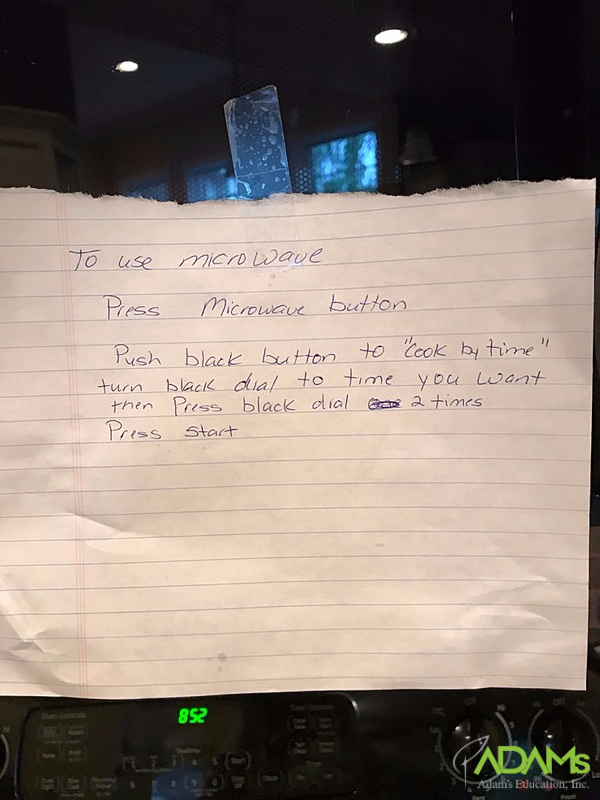 To use microwave
Press Microwave button
Push black button to "Cook by time"
turn black dial to time you want
then Press black dial 2 times
Press start
852
ADAMs
Adam's Education, Inc.